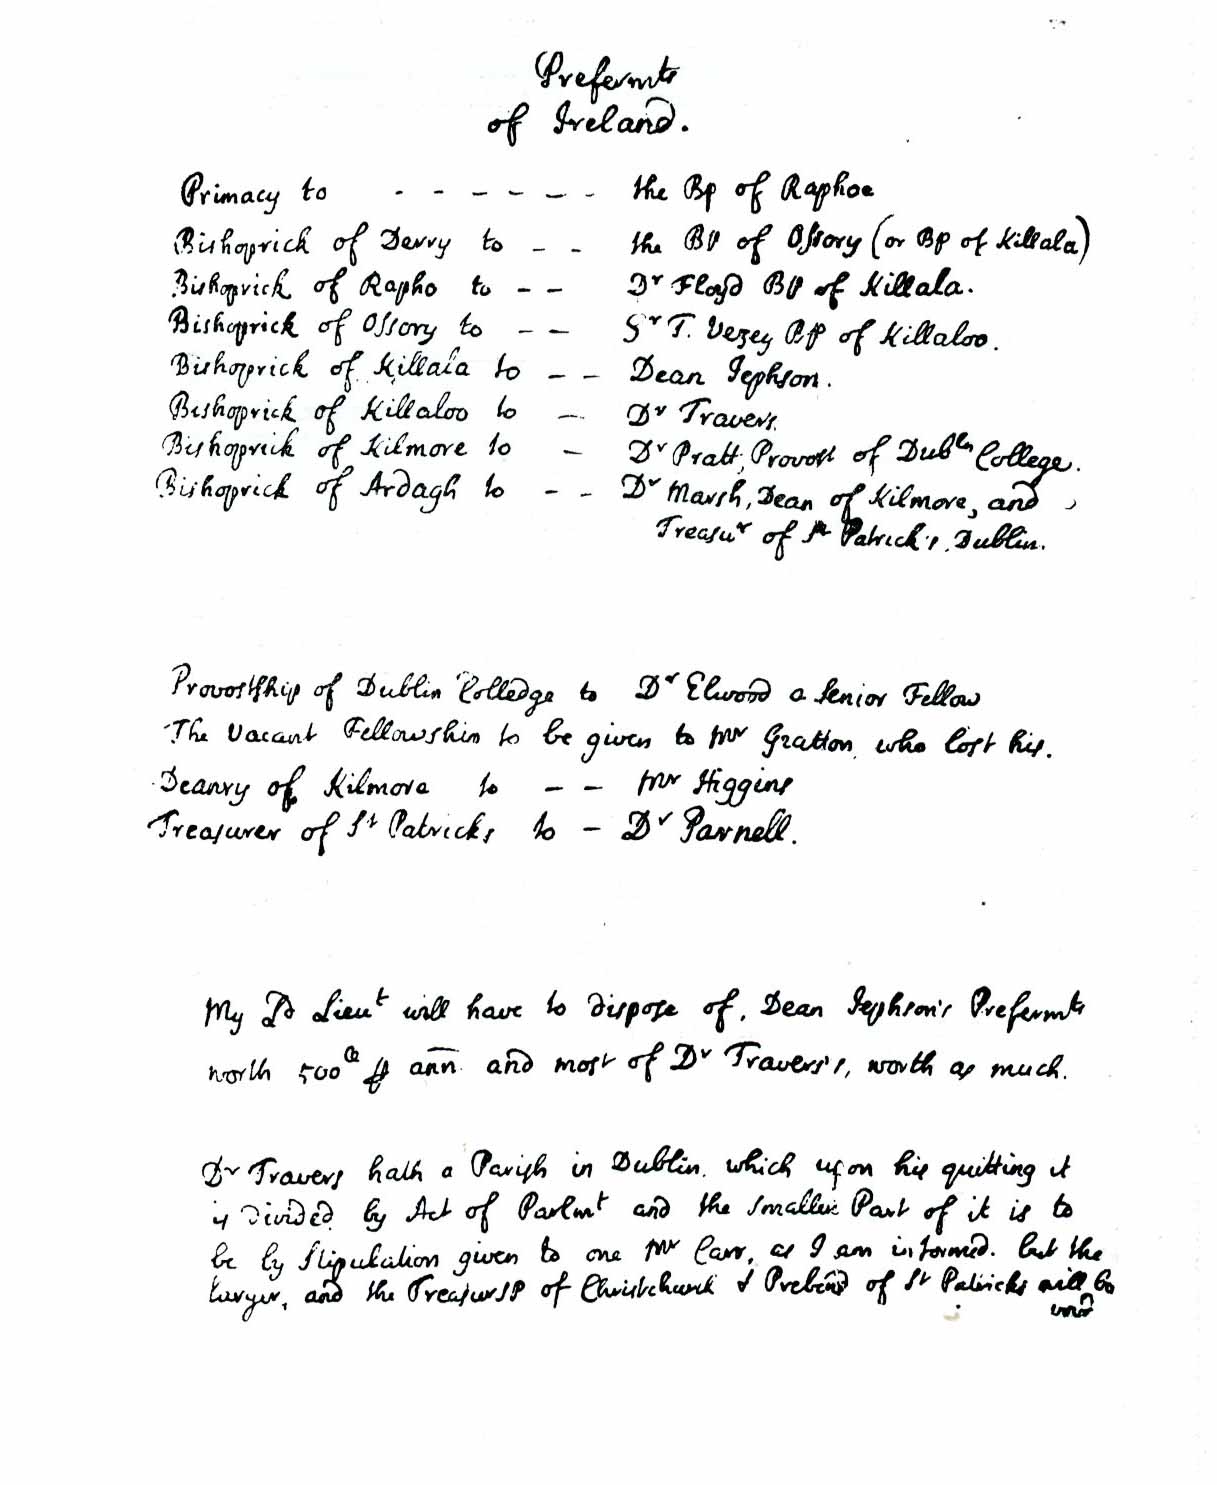 Prefermts
of Ireland.
Primacy to - - - - - - the Bp of Raphoe
Bishoprick of Derry to - - the Bp of Ossory (or Bp of Killala)
Bishoprick of Rapho to - - Dr Floyd Bp of Killala.
Bishoprick of Ossory to - - Sr T. Vezey Bp of Killaloo.
Bishoprick of Killala to - - Dean Jephson.
Bishoprick of Killaloo to - Dr Travers.
Bishoprick of Kilmore to - Dr Pratt, Provost of Dubln College.
Bishoprick of Ardagh to - - Dr Marsh, Dean of Kilmore, and
Treasur of St Patrick's, Dublin.
Provostship of Dublin Colledge to Dr Elwood a Senior Fellow
The Vacant Fellowship to be given to Mr Gratton, who lost his.
Deanry of Kilmore to - - Mr Higgins
Treasurer of St Patricks to - Dr Parnell.
My Ld Lieut will have to dispose of, Dean Jephson's Prefermts
worth 500ll ₽ ann and most of Dr Travers's, worth as much.
Dr Travers hath a Parish in Dublin, which upon his quitting it
is divided by Act of Parlmt and the smaller Part of it is to
be by Stipulation given to one Mr Carr, as I am informed. but the
larger, and the Treasursp of Christchurch & Prebend of St Patricks will be